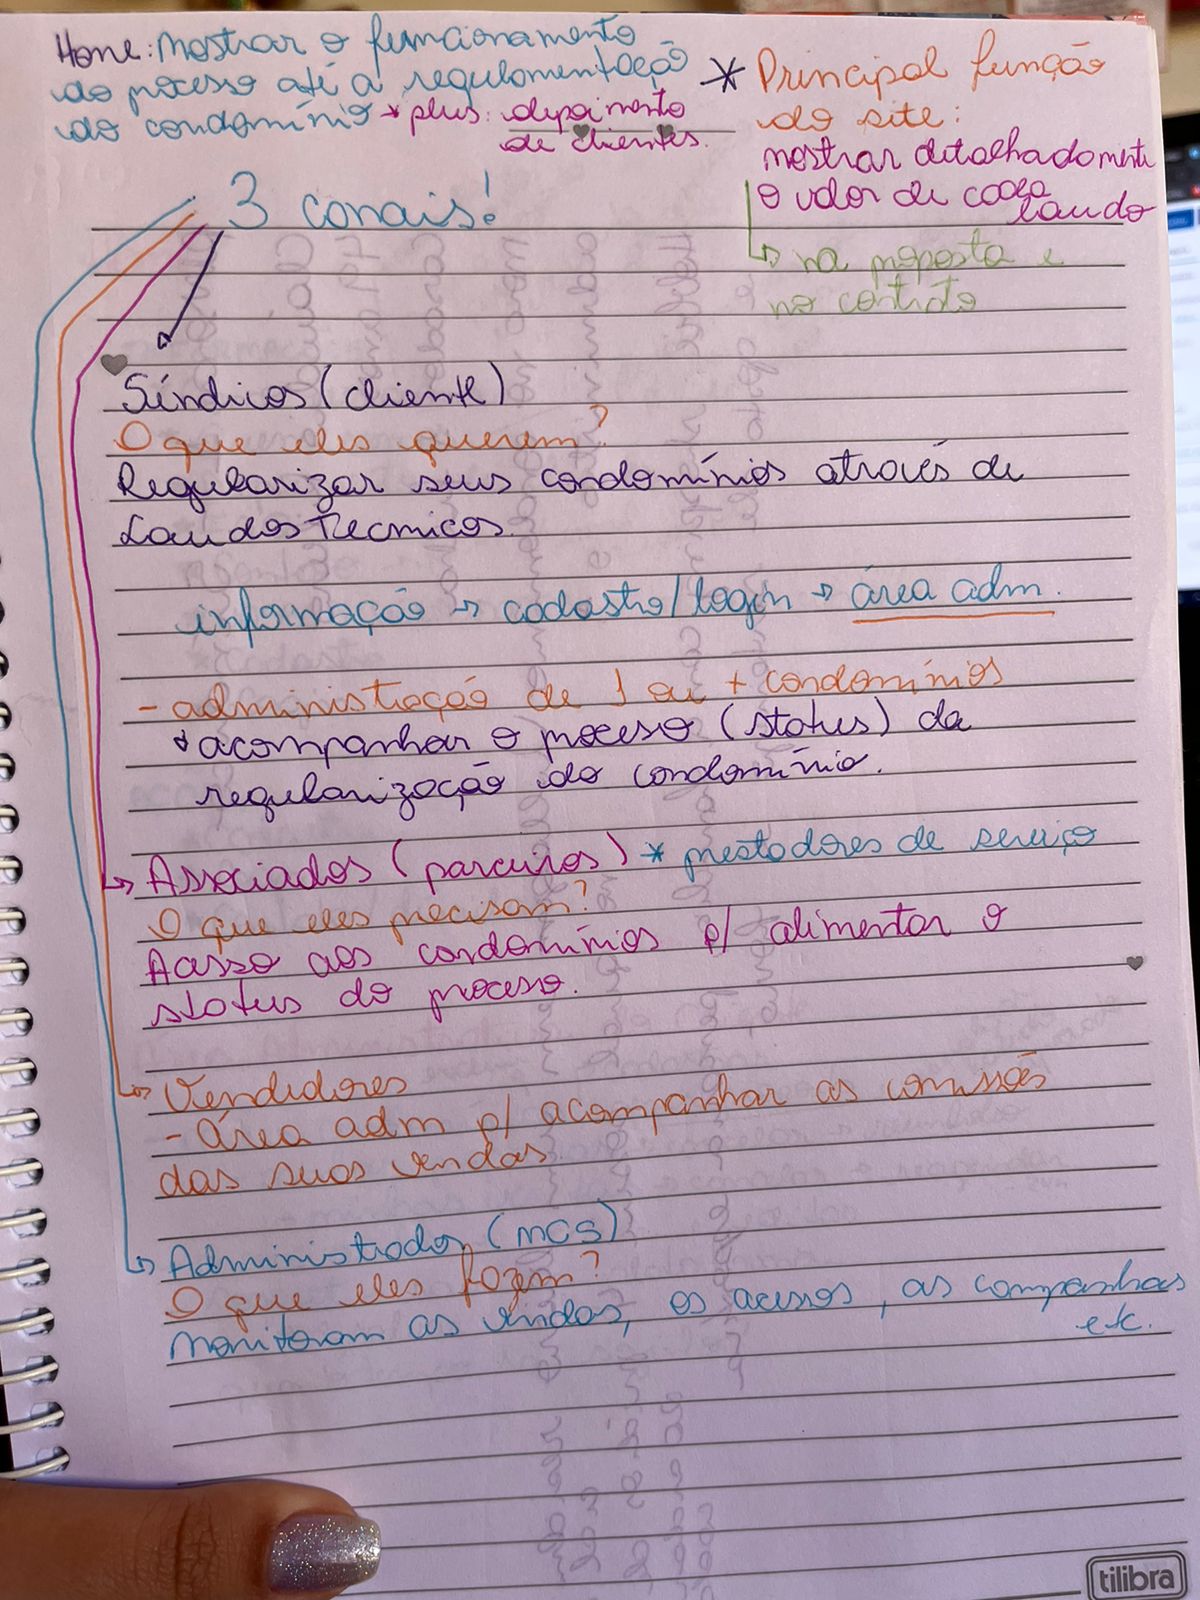 Home: Mostrar o funcionamento
do processo até a regulamentação
do condomínio * plus: depoimento
de clientes.
* Principal função
do site:
mostrar detalhadamente
o valor de cada
laudo
↳ na proposta e
no contrato
3 canais!
Síndicos (cliente)
O que eles querem?
Regularizar seus condomínios através de
Laudos Tecnicos.
informação → cadastro/login → área adm.
- administração de 1 ou + condomínios
* acompanhar o processo (status) da
regularização do condomínio.
↳ Associados (parceiros) * prestadores de serviço
O que eles precisam?
Acesso aos condomínios p/ alimentar o
status do processo.
↳ Vendedores
- área adm p/ acompanhar as comissões
das suas vendas
↳ Administrador (MCS)
O que eles fazem?
Monitoram as vendas, os acessos, as companhas
etc.
tilibra